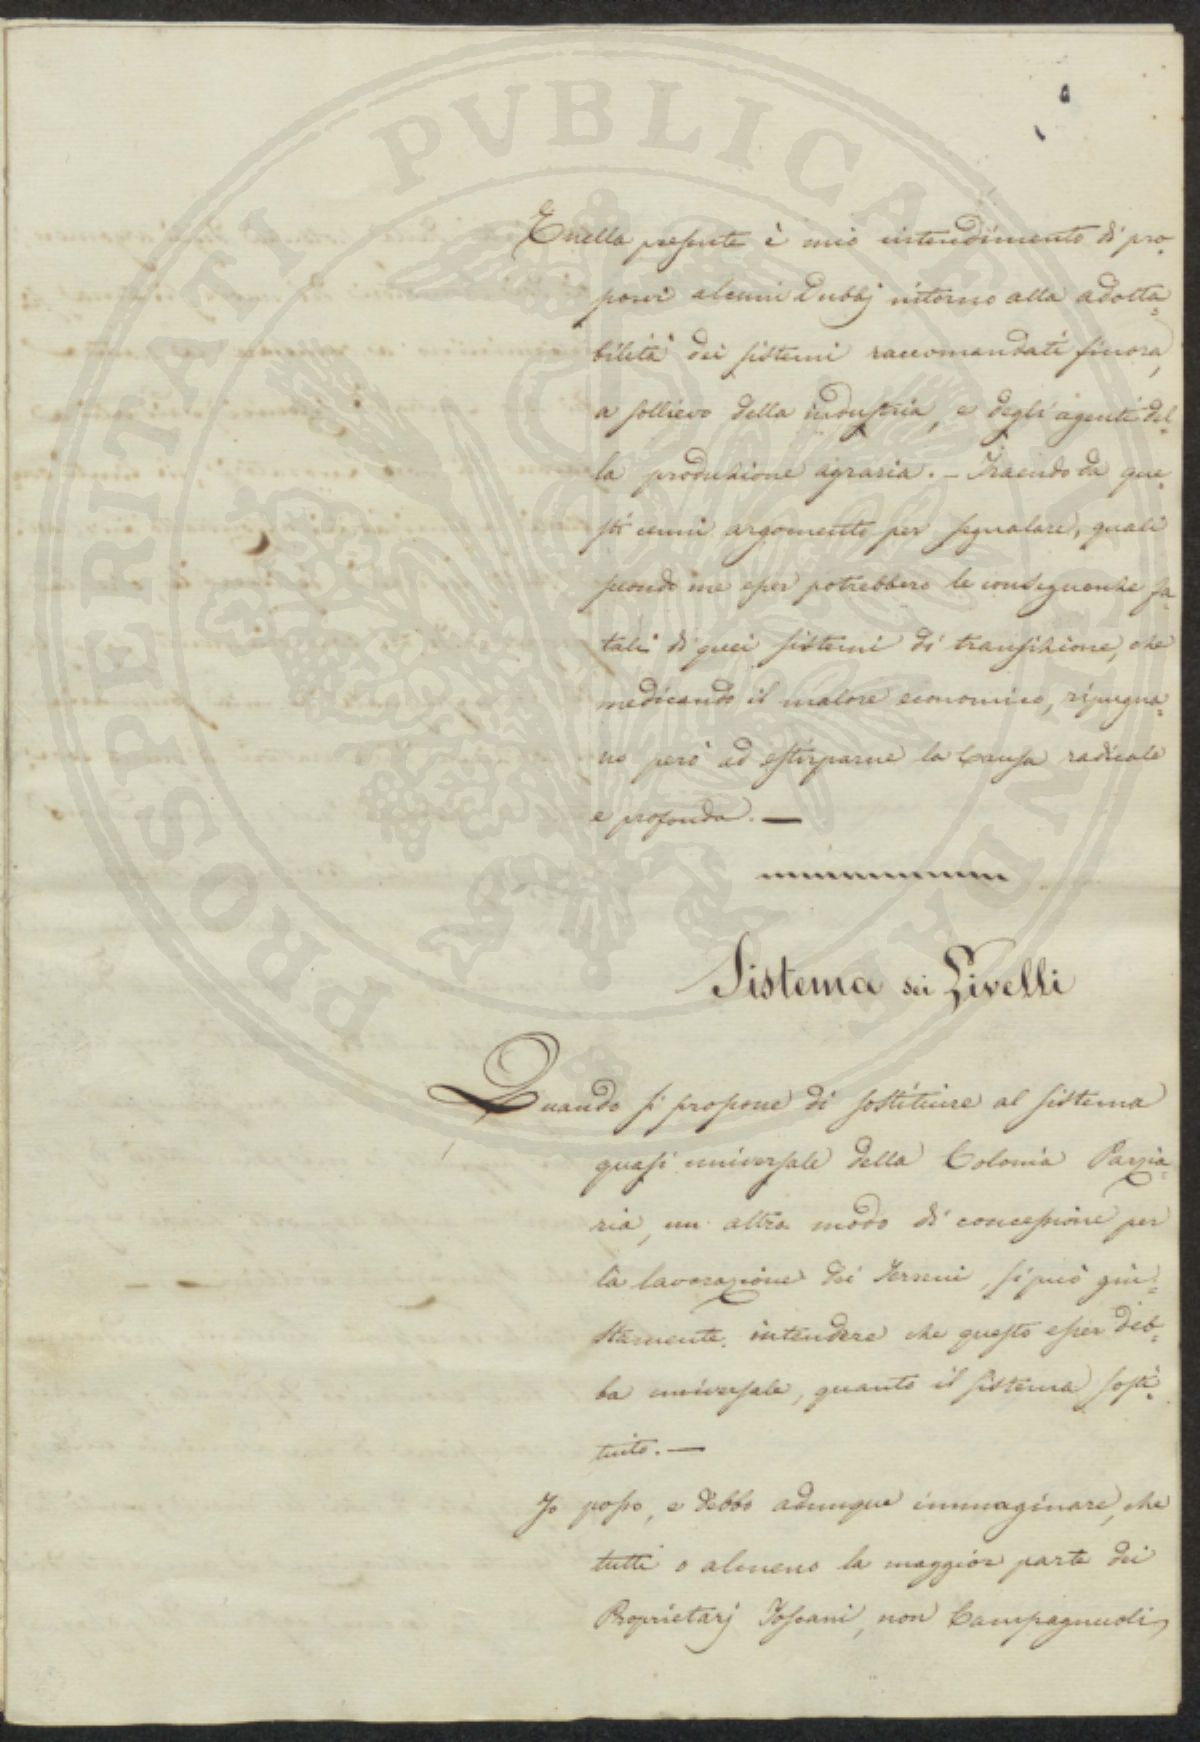 PROSPERITATI PVBLICAE AVGENDAE
E nella presente è mio intendimento di pro=
porvi alcuni Dubbj intorno alla adotta=
bilità dei sistemi raccomandati finora,
a sollievo della industria, e degli agenti del=
la produzione agraria. — Traendo da que=
sti cenni argomento per segnalare, quali
secondo me esser potrebbero le conseguenze fa=
tali di quei sistemi di transizione, che
medicando il malore economico, ripugna=
no però ad estirparne la Causa radicale
e profonda. —
Sistema dei Livelli
Quando si propone di sostituire al sistema
quasi universale della Colonia Parzia=
ria, un altro modo di concessione per
la lavorazione dei Terreni, si può giu=
stamente intendere che questo esser deb=
ba universale, quanto il sistema sosti=
tuito. —
Io posso, e debbo adunque immaginare, che
tutti o almeno la maggior parte dei
Proprietarj Toscani, non Campagnuoli,